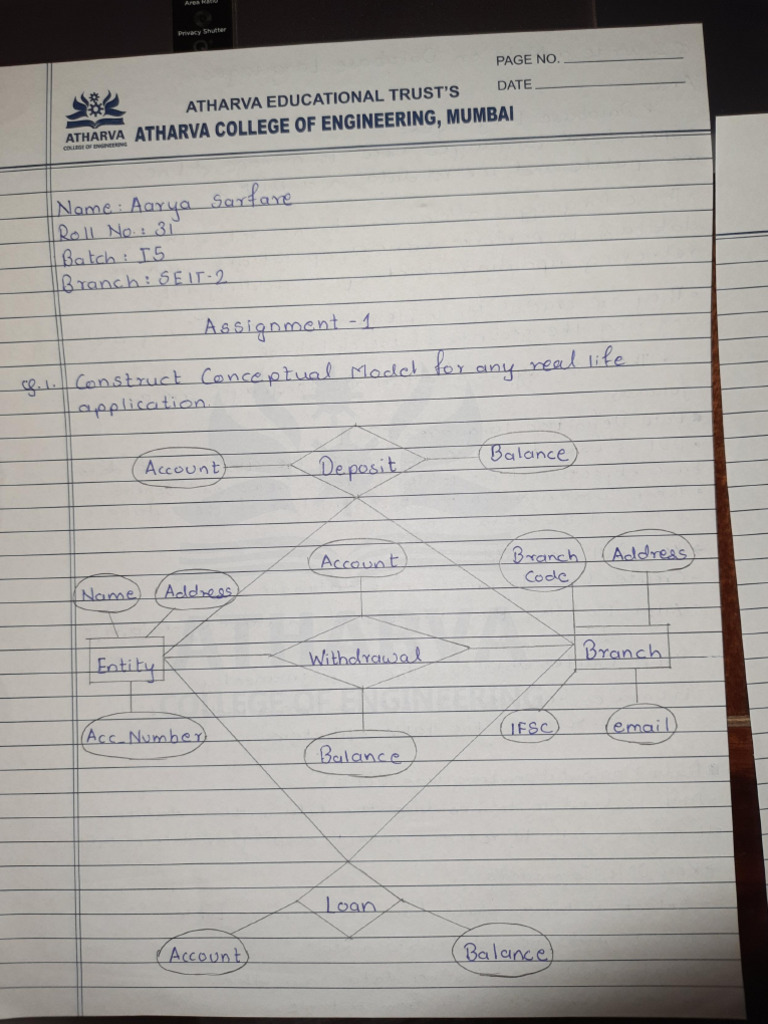 Area Ratio
Privacy Shutter
PAGE NO.
DATE
ATHARVA EDUCATIONAL TRUST'S
ATHARVA COLLEGE OF ENGINEERING, MUMBAI
ATHARVA
COLLEGE OF ENGINEERING
Name: Aarya Sarfare
Roll No.: 31
Batch: I5
Branch: SEIT-2
Assignment - 1
Q.1. Construct Conceptual Model for any real life
application.
Account Deposit Balance
Account Branch Code Address
Name Address
Entity Withdrawal Branch
Acc_Number Balance IFSC email
ATHARVA
COLLEGE OF ENGINEERING
Loan
Account Balance